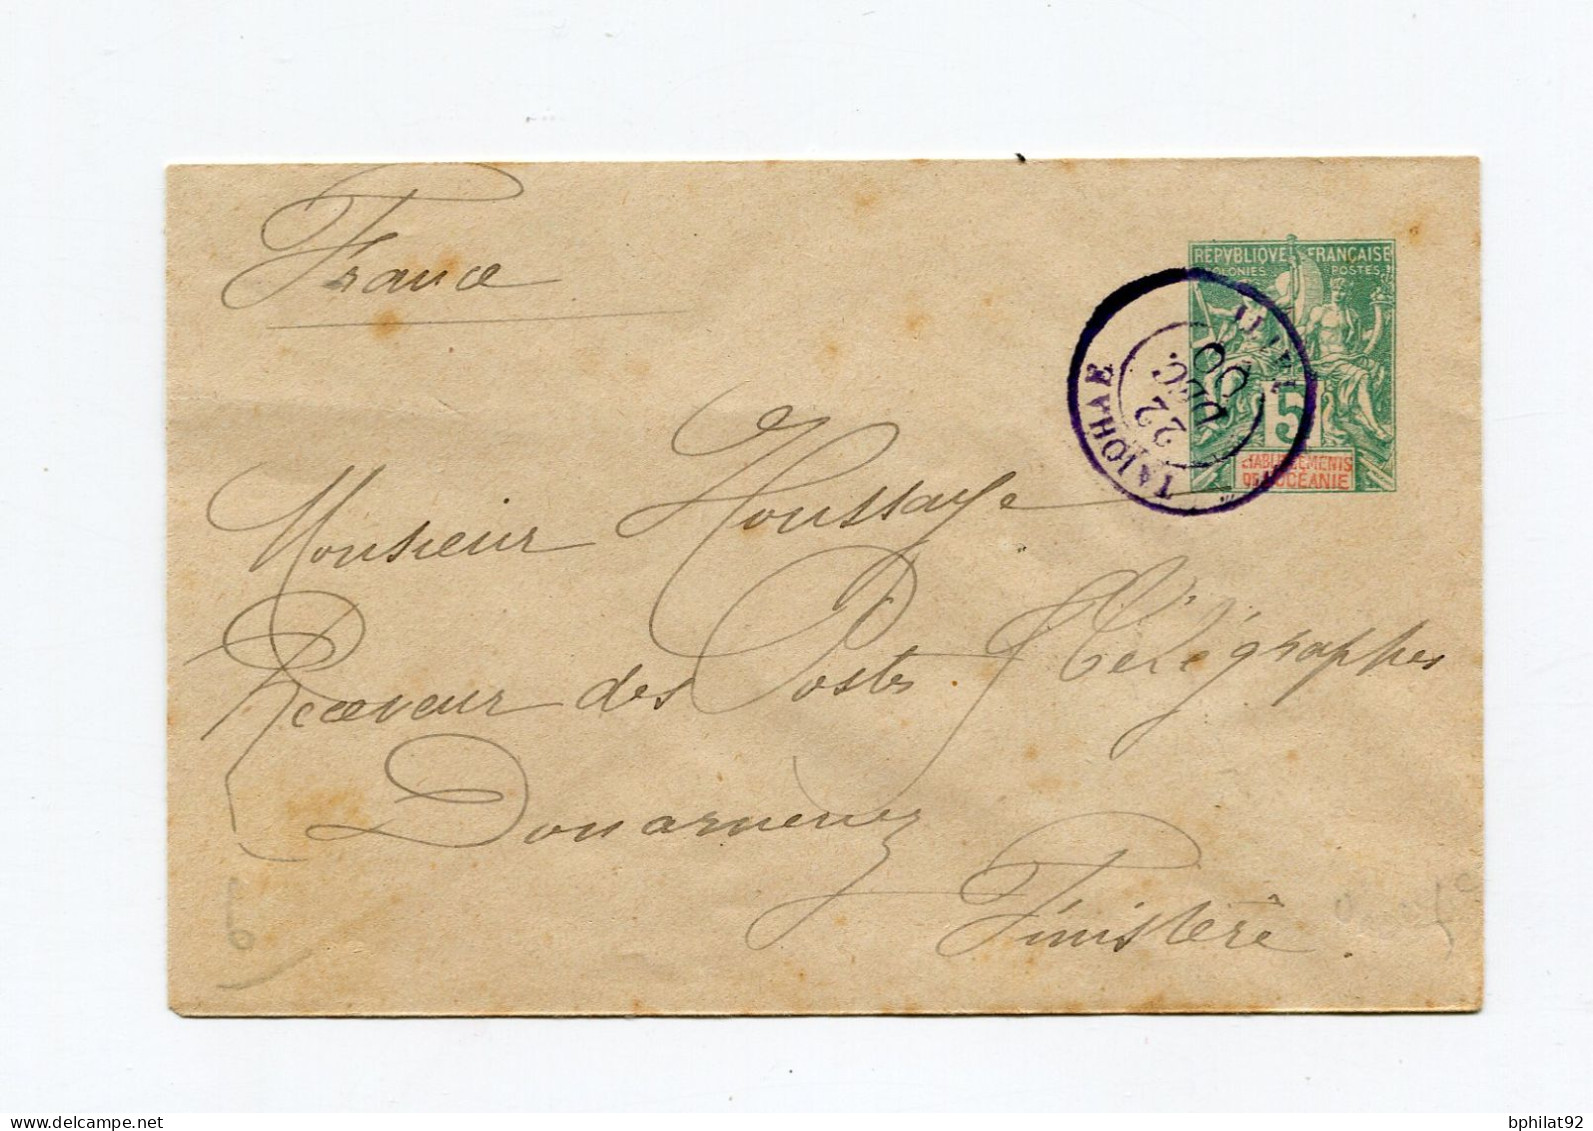 France
REPVBLIQVE FRANÇAISE
COLONIES POSTES
5
ETABLISSEMENTS
DE L'OCÉANIE
TAIOHAE
22
DEC.
00
TAITI
Monsieur Houssaye
Receveur des Postes & Télégraphes
Douarnenez
Finistère.
bphilat92